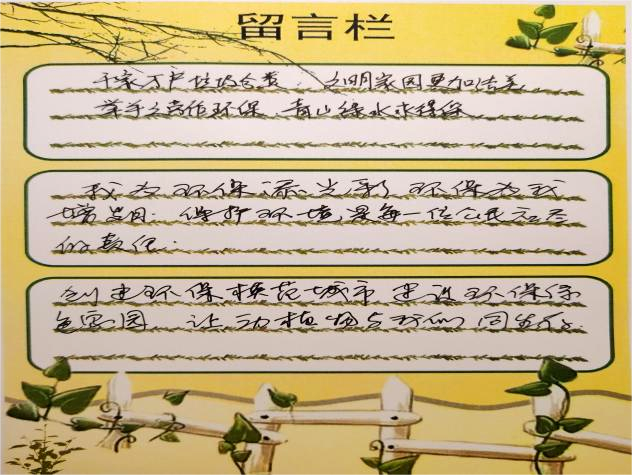 留言栏
千家万户垃圾分类，文明家园更加洁美
举手之劳作环保、青山绿水求得保
我为环保添光彩 环保为我
增荣目: 保护环境是每一位公民应尽
的责任.
创建环保模范城市 建设环保绿
色家园 让动植物与我们同生存.